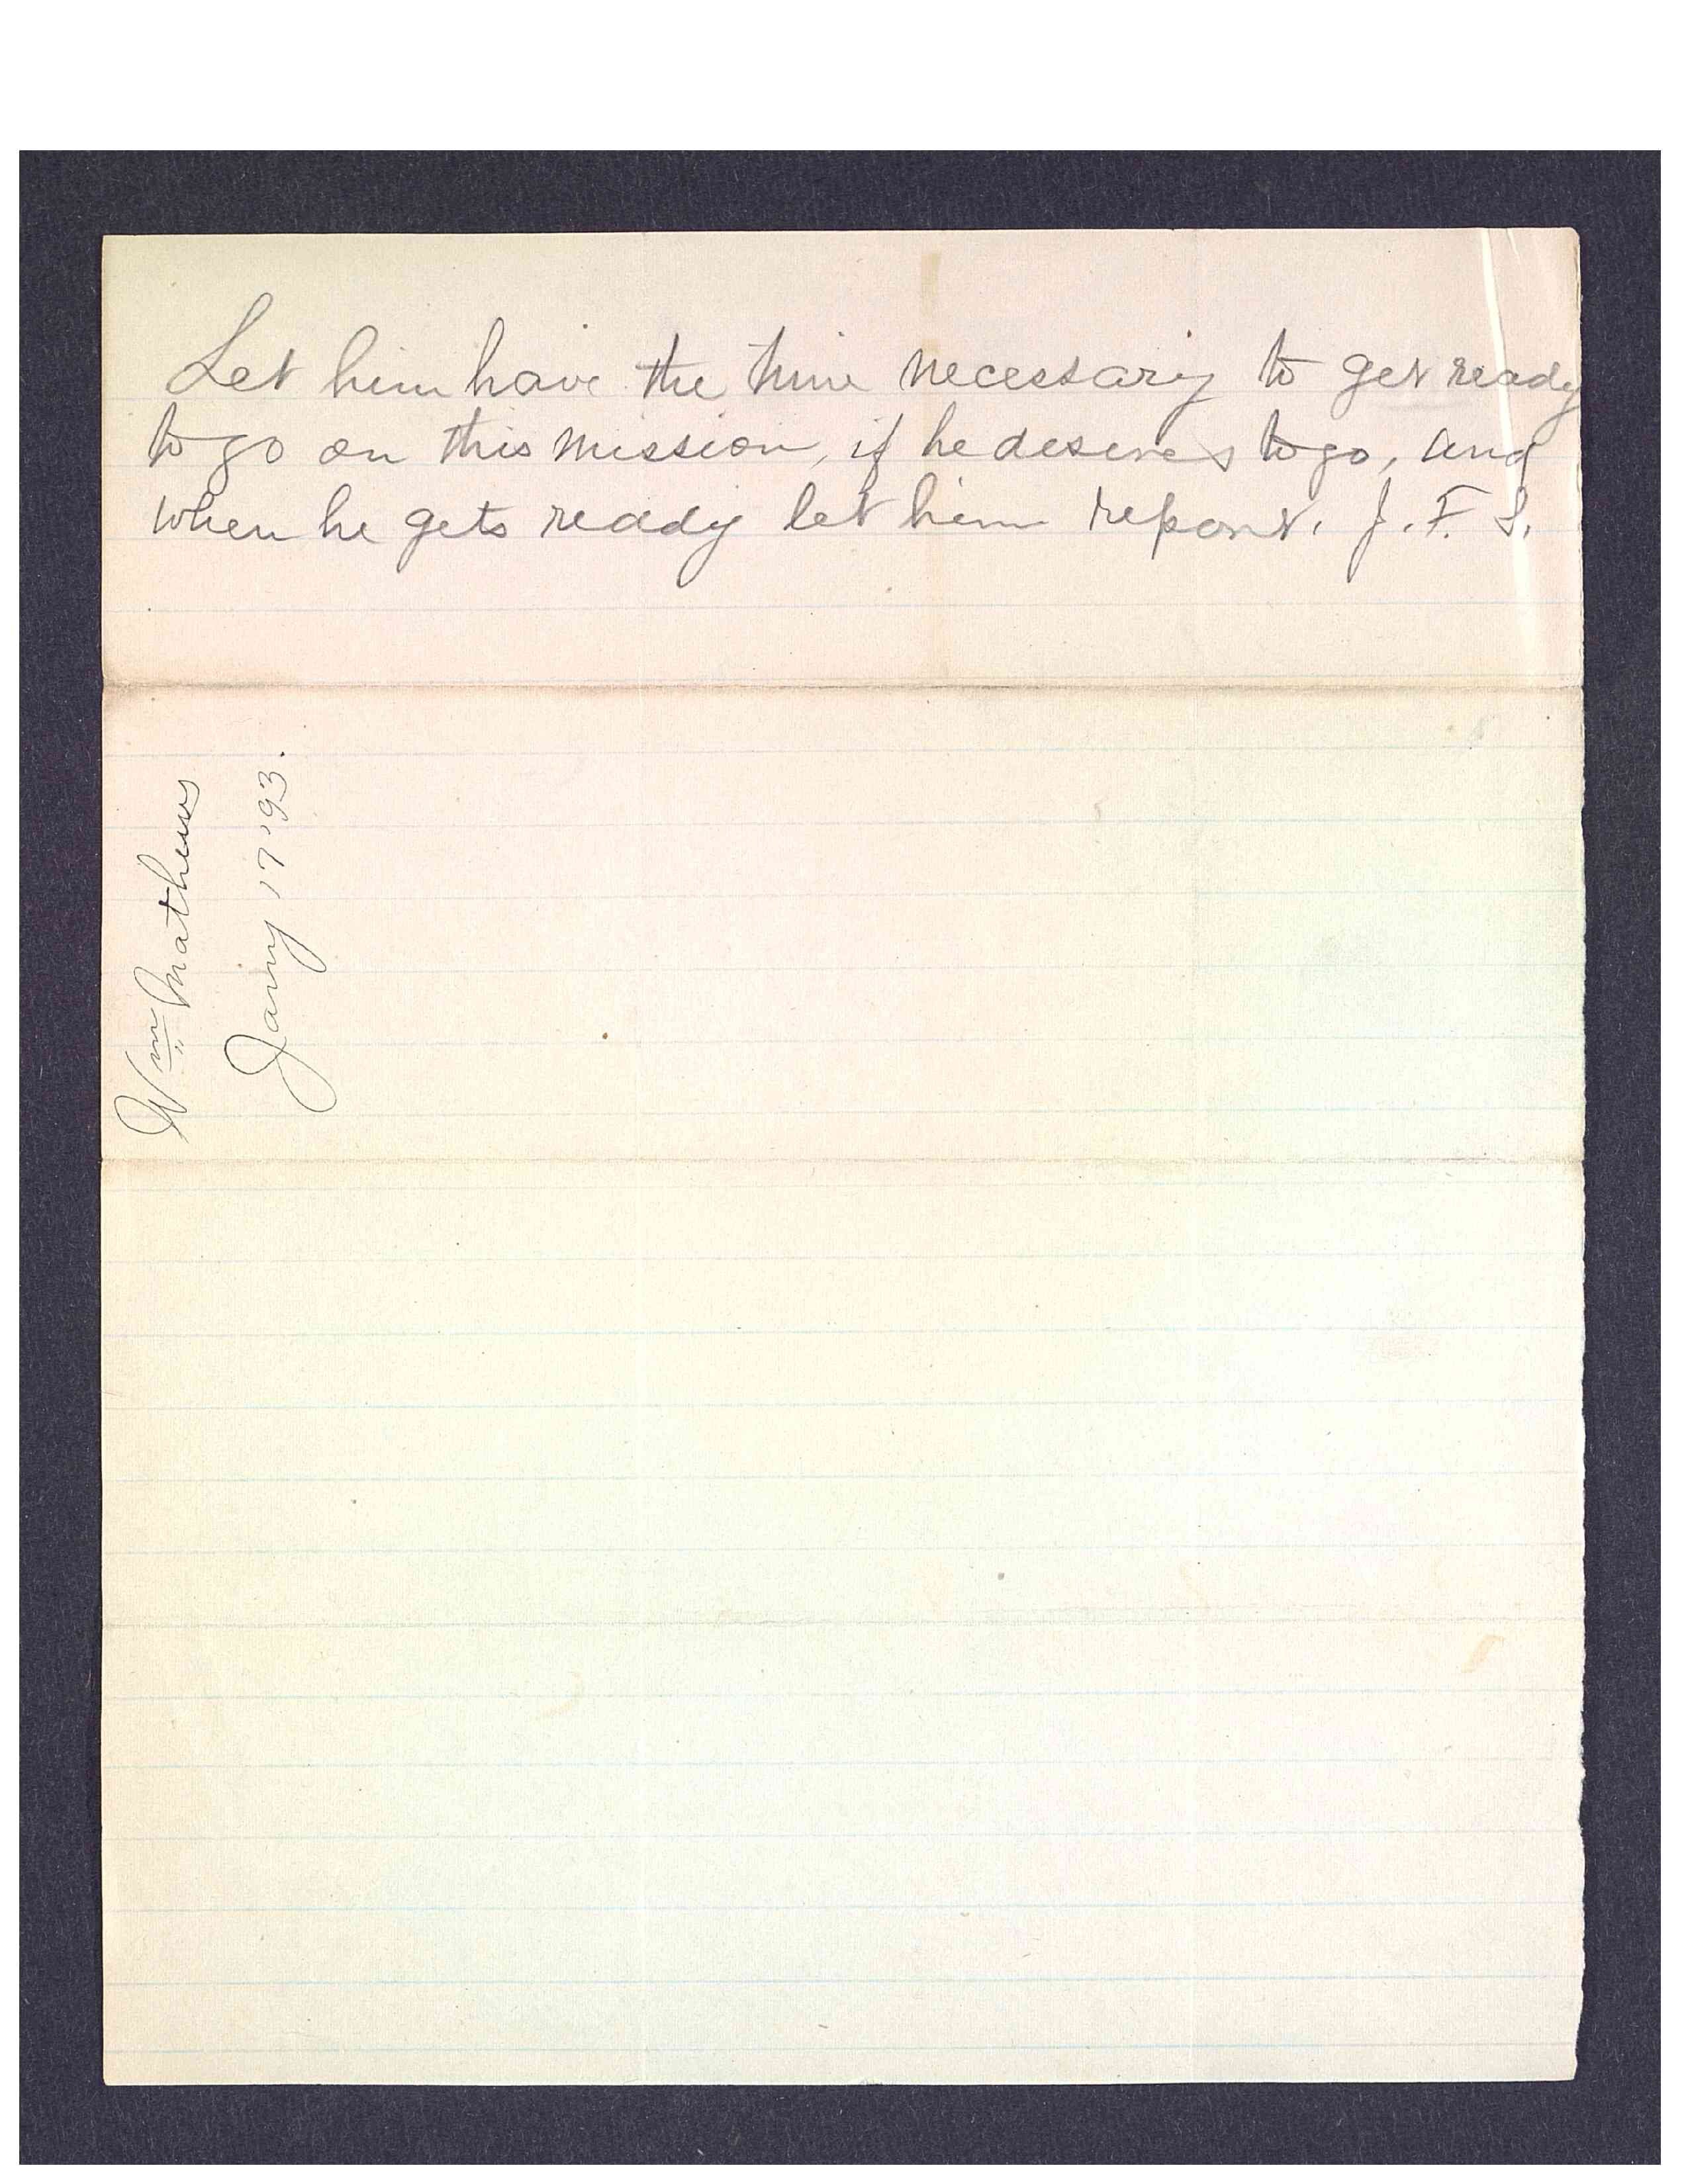 Let him have the time necessary to get ready
to go on this mission, if he desires to go, and
when he gets ready let him report. J. F. S.
Wm Mathews
Jany 17 '93.